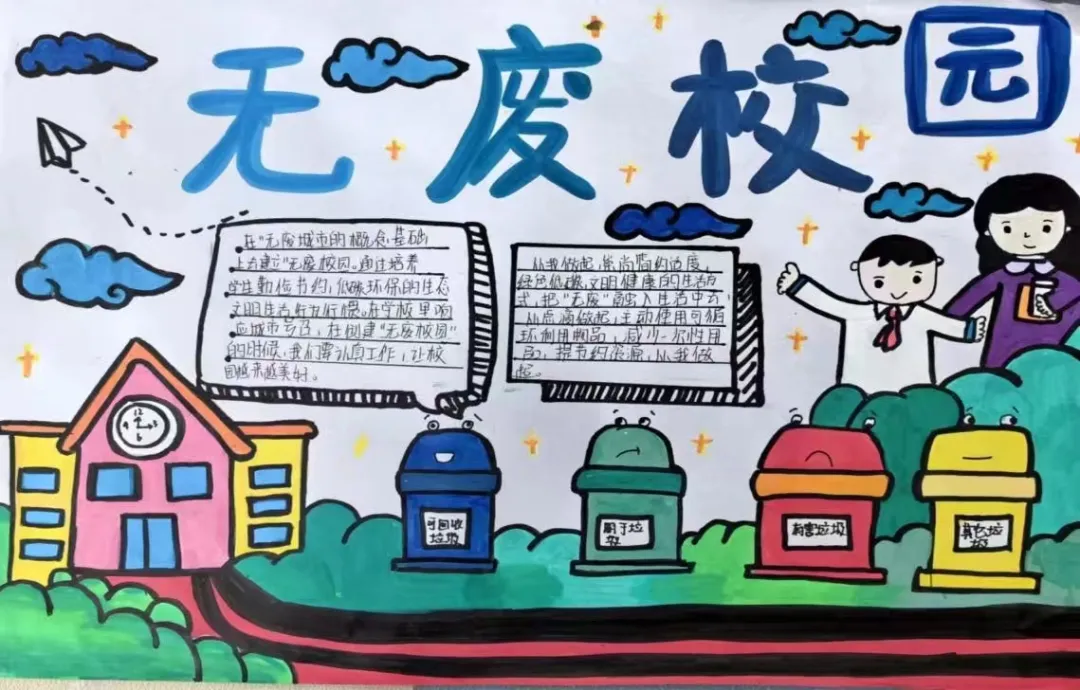 无废校园
在"无废城市的概念基础
上去建立"无废校园。通过培养
学生勤俭节约,低碳环保的生态
文明生活行为行惯。在学校里响
应城市号召,在创建"无废校园"
的时候,我们要认真工作,让校
园越来越美好。
从我做起,崇尚简约适度,
绿色低碳,文明健康的生活方
式,把"无废"融入生活中去,
从点滴做起,主动使用可循
环利用物品,减少一次性用
品,提节约资源,从我做
起。
可回收
垃圾
厨于垃
圾
有害垃圾
其它垃
圾
12
3
6
9